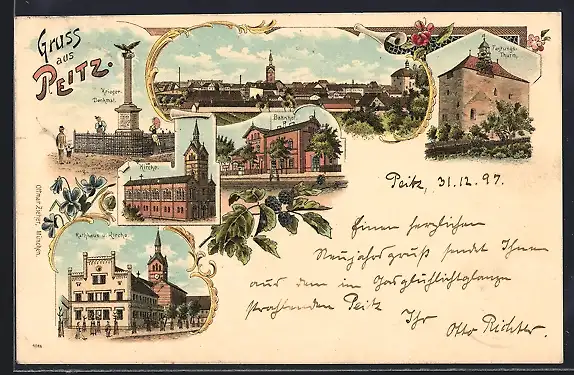 Gruss
aus
PEITZ.
Krieger-
Denkmal.
Festungs-
Thurm.
Bahnhof
Kirche.
Rathhaus u. Kirche
Ottmar Zieher, München.
Peitz, 31.12.97.
Einen herzlichen
Neujahrsgruß sendet Ihnen
aus dem im Gasglühlichtglanze
strahlenden Peitz
Ihr Otto Richter.